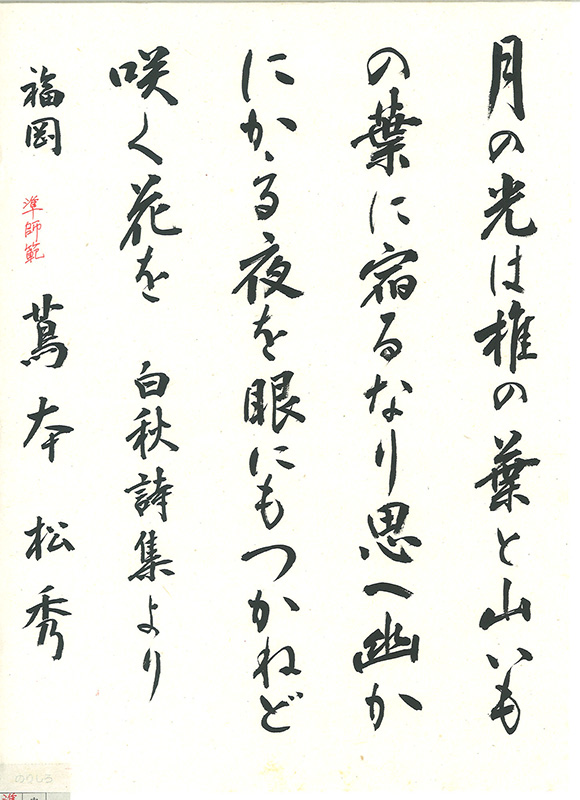 月の光は椎の葉と山いも
の葉に宿るなり思へ幽か
にかゝる夜を眼にもつかねど
咲く花を 白秋詩集より
福岡 準師範 蔦本松秀
のりしろ